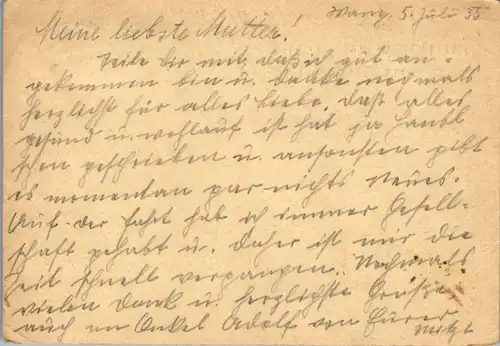 Wang, 5. Juli 35
Meine liebste Mutter!
Teile dir mit, daß ich gut an-
gekommen bin u. danke nochmals
herzlichst für alles Liebe. daß alles
gesund u. wohlauf ist hat ja Hansl
schon geschrieben u. ansonsten gibt
es momentan gar nichts neues.
Auf der Fahrt hab ich immer Gesell-
schaft gehabt u. daher ist mir die
Zeit schnell vergangen. Nochmals
vielen Dank u. herzlichste Grüße
auch an Onkel Adolf von Eurer